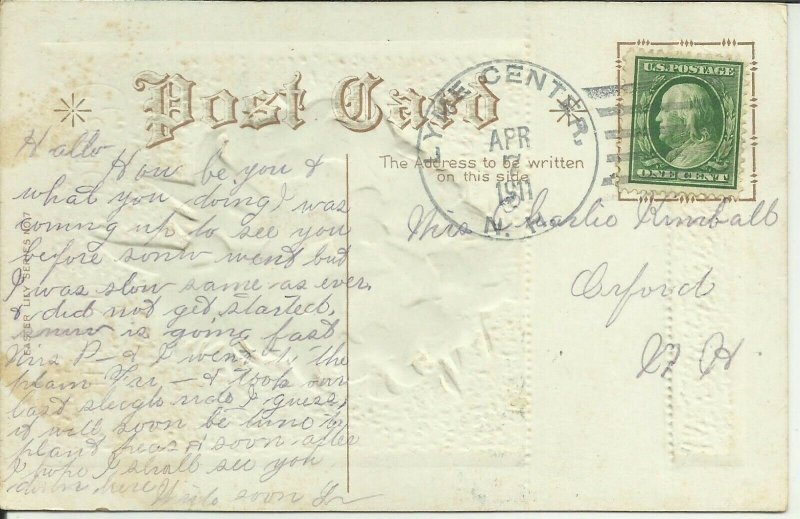 Post Card
The Address to be written
on this side
LYME CENTER.
APR
1911
N. H.
U.S. POSTAGE
ONE CENT
EASTER LILY SERIES NO. 7
Hallo
How be you &
what you doing I was
coming up to see you
before snow went but
I was slow same as ever
& did not get started.
snow is going fast
Miss P— & I went to the
plain Fri — & took our
last sleigh ride I guess,
it will soon be time to
plant peas & soon after
I hope I shall see you
down here
Write soon
Miss Kimball
Orford
N H.